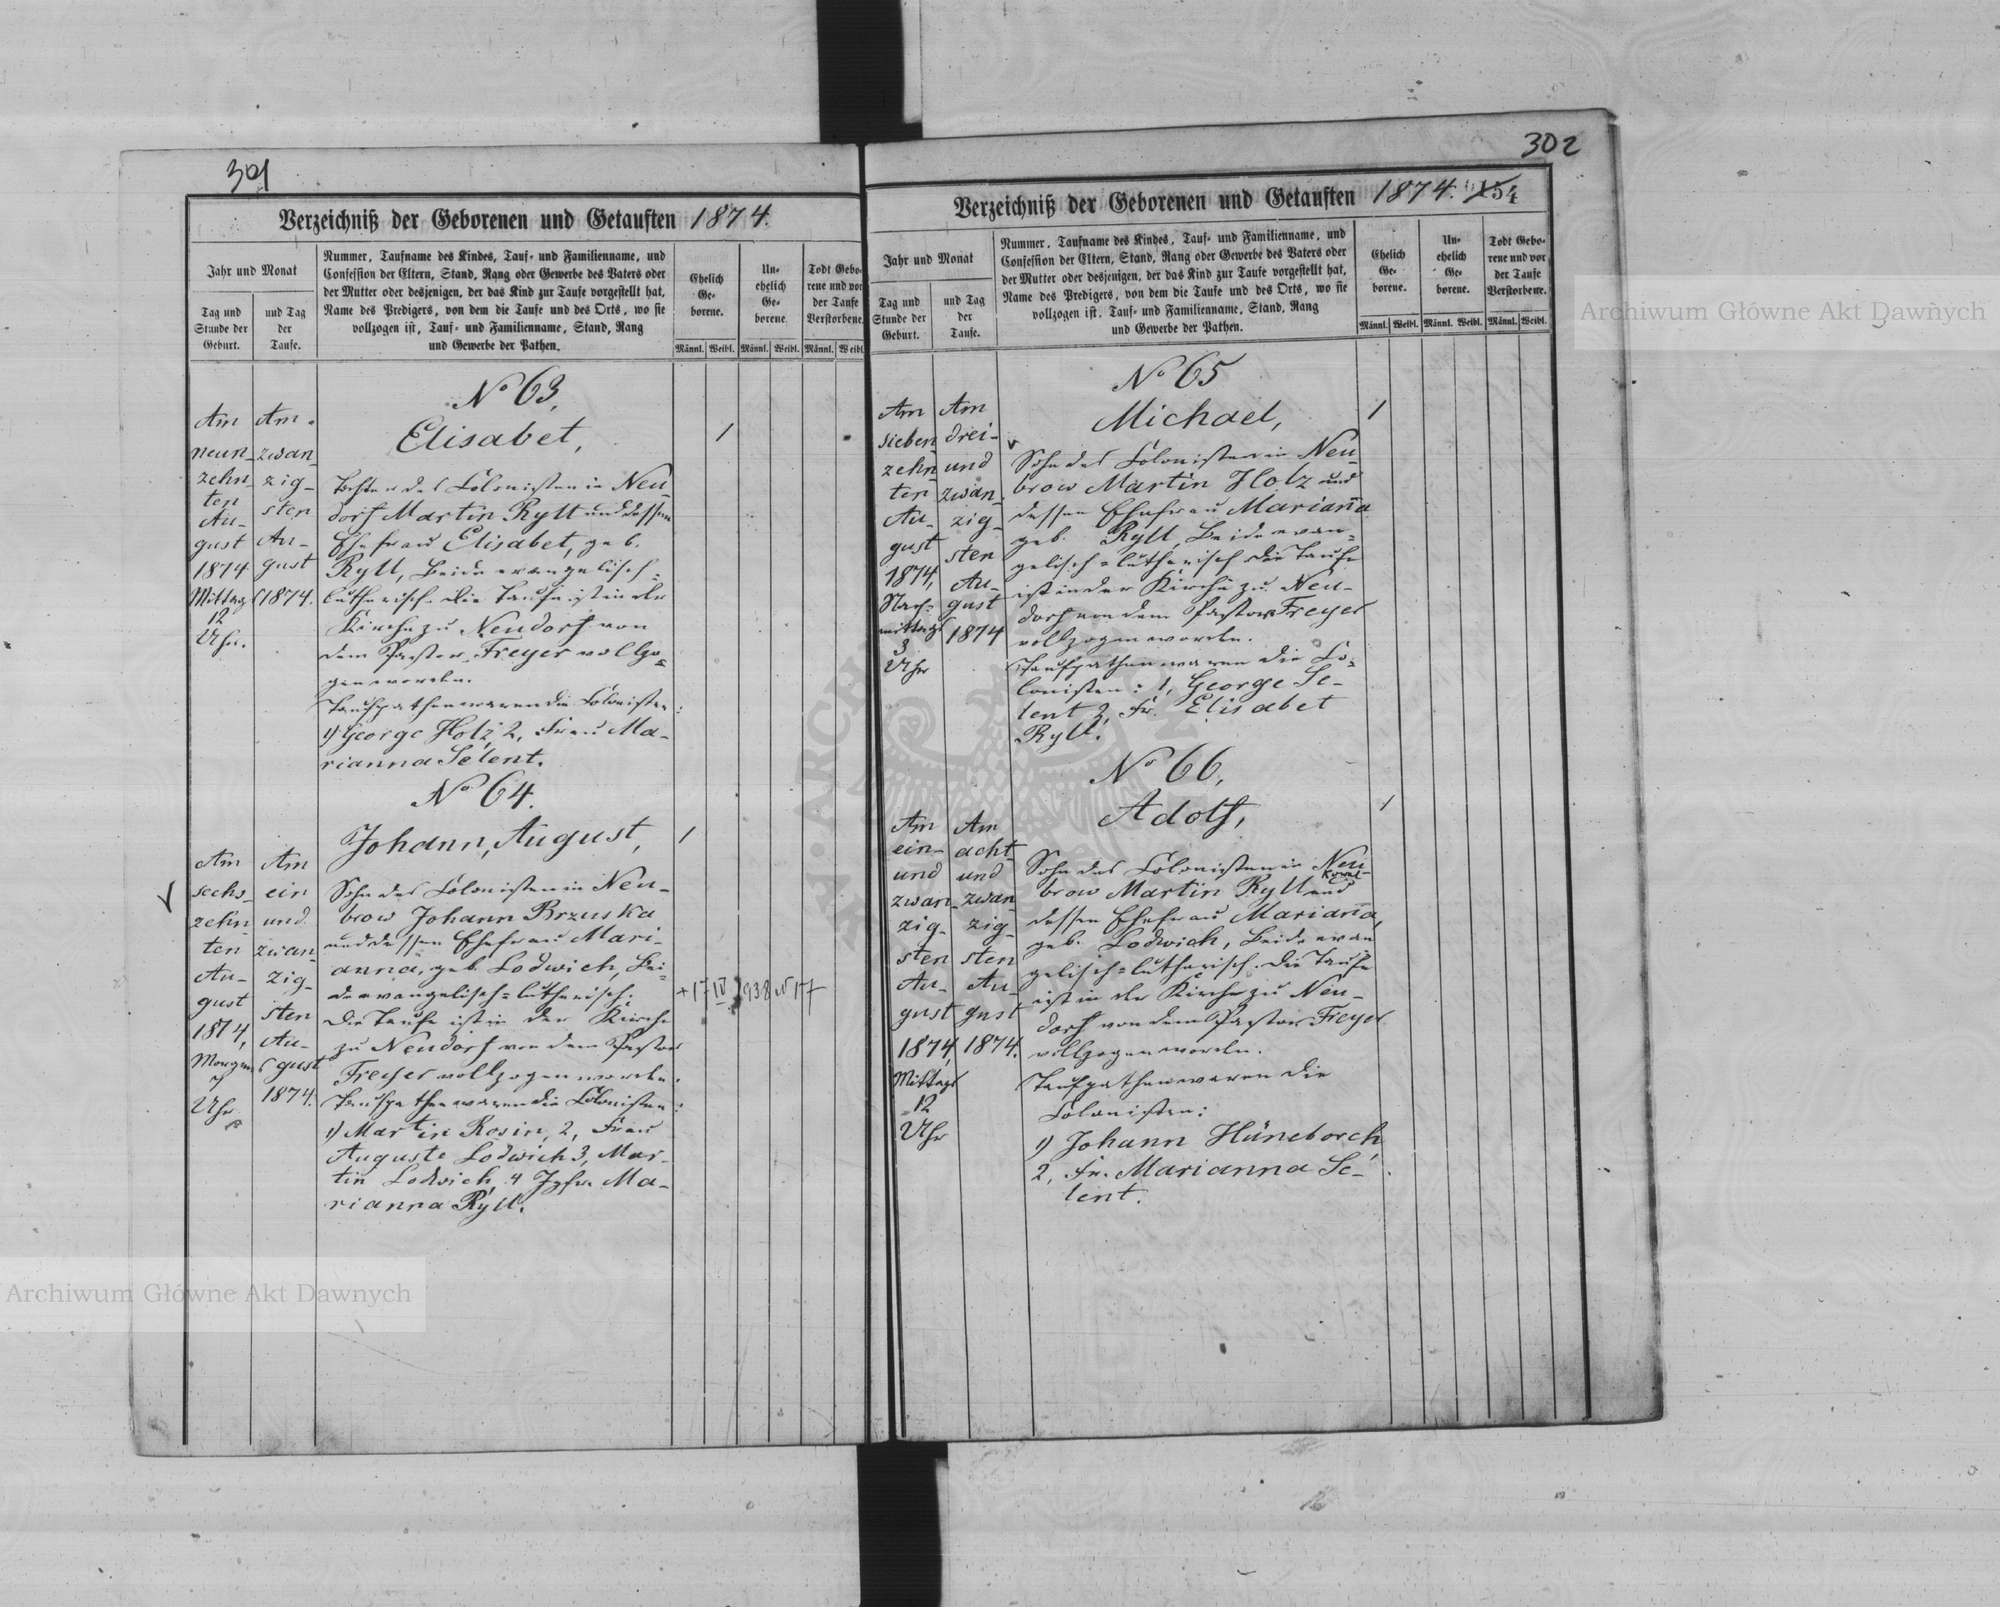 301
Verzeichniß der Geborenen und Getauften 1874.
Jahr und Monat
Tag und
Stunde der
Geburt.
und Tag
der
Taufe.
Nummer, Taufname des Kindes, Tauf- und Familienname, und
Confession der Eltern, Stand, Rang oder Gewerbe des Vaters oder
der Mutter oder desjenigen, der das Kind zur Taufe vorgestellt hat,
Name des Predigers, von dem die Taufe und des Orts, wo sie
vollzogen ist, Tauf- und Familienname, Stand, Rang
und Gewerbe der Pathen.
Ehelich
Ge-
borene.
Un-
ehelich
Ge-
borene.
Todt Gebo-
rene und vor
der Taufe
Verstorbene.
Männl. Weibl. Männl. Weibl. Männl. Weibl.
No 63,
Am
neun-
zehn
ten
Au-
gust
1874
Mittags
12
Uhr.
Am
zwan-
zig-
sten
Au-
gust
1874.
Elisabet,
1
Tochter des Colonisten in Neu-
dorf Martin Ryll und dessen
Ehefrau Elisabet, geb.
Ryll, Beide evangelisch-
lutherisch. Die Taufe ist in der
Kirche zu Neudorf von
dem Pastor Freyer vollzo-
gen worden.
Taufpathen waren die Colonisten:
1) George Holz 2, Frau Ma-
rianna Selent.
No 64.
Am
sechs-
zehn
ten
Au-
gust
1874,
Morgens
Uhr
Am
ein
und
zwan-
zig-
sten
Au-
gust
1874.
Johann, August,
1
Sohn des Colonisten in Neu-
brow Johann Brzuska
und dessen Ehefrau Mari-
anna, geb. Lodwich, Bei-
de evangelisch=lutherisch.
Die Taufe ist in der Kirche
zu Neudorf von dem Pastor
Freyer vollzogen worden.
Taufpathen waren die Colonisten:
1) Martin Rosin, 2, Frau
Auguste Lodwich 3, Mar-
tin Lodwich, 4 Jgfr. Ma-
rianna Ryll.
+ 17 IV 1938 N 17
302
Verzeichniß der Geborenen und Getauften 1874. 154
Jahr und Monat
Tag und
Stunde der
Geburt.
und Tag
der
Taufe.
Nummer, Taufname des Kindes, Tauf- und Familienname, und
Confession der Eltern, Stand, Rang oder Gewerbe des Vaters oder
der Mutter oder desjenigen, der das Kind zur Taufe vorgestellt hat,
Name des Predigers, von dem die Taufe und des Orts, wo sie
vollzogen ist, Tauf- und Familienname, Stand, Rang
und Gewerbe der Pathen.
Ehelich
Ge-
borene.
Un-
ehelich
Ge-
borene.
Todt Gebo-
rene und vor
der Taufe
Verstorbene.
Männl. Weibl. Männl. Weibl. Männl. Weibl.
No 65
Am
sieben
zehn
ten
Au-
gust
1874,
Nach-
mittags
3
Uhr
Am
drei-
und
zwan-
zig-
sten
Au-
gust
1874
Michael,
1
Sohn des Colonisten in Neu-
brow Martin Holz und
dessen Ehefrau Marianna
geb. Ryll, Beide evan-
gelisch=lutherisch. Die Taufe
ist in der Kirche zu Neu-
dorf von dem Pastor Freyer
vollzogen worden.
Taufpathen waren die Co-
lonisten: 1, George Se-
lent 2, Fr. Elisabet
Ryll.
No 66,
Am
ein-
und
zwan-
zig-
sten
Au-
gust
1874,
Mittags
12
Uhr
Am
acht-
und
zwan-
zig-
sten
Au-
gust
1874.
Adolf,
1
Sohn des Colonisten in Neu-
brow Martin Ryll und
dessen Ehefrau Marianna,
geb. Lodwich, Beide evan
gelisch=lutherisch. Die Taufe
ist in der Kirche zu Neu-
dorf von dem Pastor Freyer
vollzogen worden.
Taufpathen waren die
Colonisten:
1) Johann Hüneborch
2, Fr. Marianna Se-
lent.
Archiwum Główne Akt Dawnych
Archiwum Główne Akt Dawnych